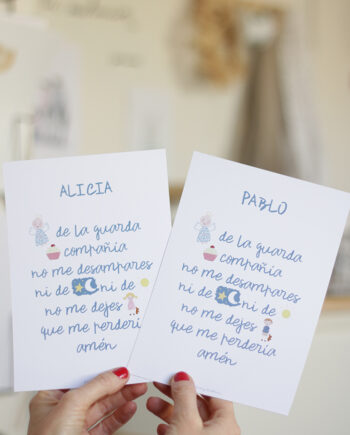 ALICIA
de la guarda
compañia
no me desampares
ni de ni de
no me dejes
que me perdería
amén
PABLO
de la guarda
compañia
no me desampares
ni de ni de
no me dejes
que me perdería
amén